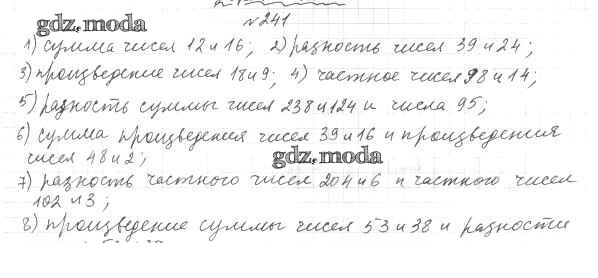 №241
gdz.moda
1) сумма чисел 12 и 16; 2) разность чисел 39 и 24;
3) произведение чисел 18 и 9; 4) частное чисел 98 и 14;
5) разность суммы чисел 238 и 124 и числа 95;
6) сумма произведения чисел 39 и 16 и произведения
чисел 48 и 2;
gdz.moda
7) разность частного чисел 204 и 6 и частного чисел
102 и 3;
8) произведение суммы чисел 53 и 38 и разности